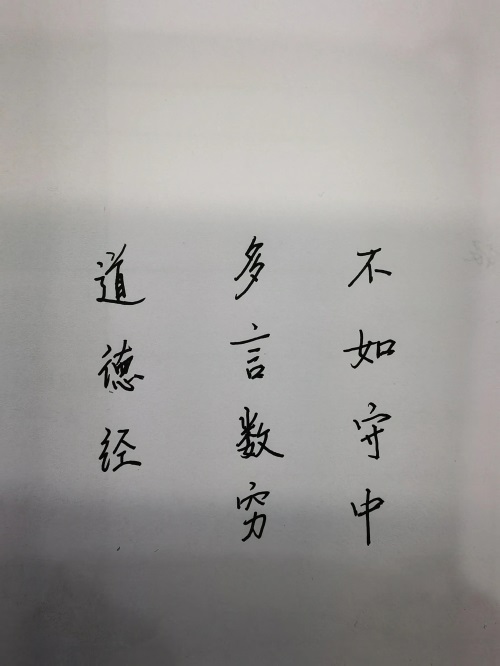 道德经
多言数穷
不如守中